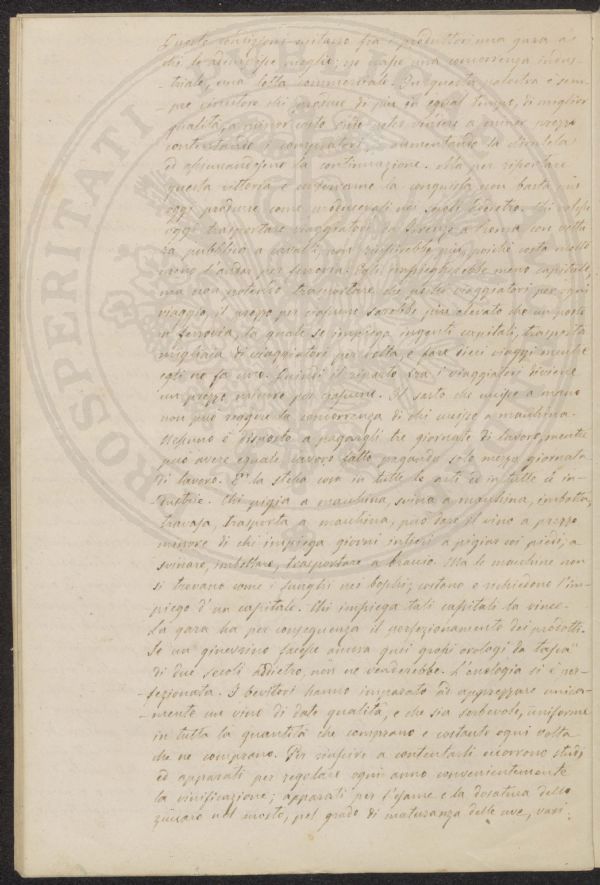 Queste condizioni suscitano fra i produttori una gara a
chi le adempisse meglio; ne nasce una concorrenza indus-
-triale, una lotta commerciale. In questa palestra è sem-
pre vincitore chi produce di più in egual tempo, di miglior
qualità, a minor costo onde poter vendere a minor prezzo
contentando i compratori, aumentando la clientela
ed assicurandosene la continuazione. Ma per riportare
questa vittoria e conservarne la conquista non basta più
oggi produrre come producevasi nei secoli addietro. Chi volesse
oggi trasportare viaggiatori da Firenze a Roma con vettu
ra pubblica a cavalli, non riuscirebbe più, poichè costa molto
meno l'andar per ferrovia. Egli impiegherebbe meno capitali,
ma non potendo trasportare che pochi viaggiatori per ogni
viaggio, il prezzo per ciascuno sarebbe più elevato che un posto
in ferrovia, la quale se impiega ingenti capitali, trasporta
migliaia di viaggiatori per volta, e fare dieci viaggi mentre
egli ne fa uno. Quindi il riparto tra i viaggiatori diviene
un prezzo minore per ciascuno. Il sarto che cuisse a mano
non può reggere la concorrenza di chi cuisse a macchina.
Nessuno è disposto a pagargli tre giornate di lavoro, mentre
può avere eguale lavoro fatto pagando solo mezza giornata
di lavoro. È la stessa cosa in tutte le arti ed in tutte le in-
-dustrie. Chi pigia a macchina, svina a macchina, imbotta,
travasa, trasporta a macchina, può dare il vino a prezzo
minore di chi impiega giorni interi a pigiar coi piedi, a
svinare, imbottare, trasportare a braccio. Ma le macchine non
si trovano come i funghi nei boschi; costano e richiedono l'im-
piego d'un capitale. Chi impiega tali capitali la vince.
La gara ha per conseguenza il perfezionamento dei prodotti.
Se un ginevrino facesse ancora quei grossi orologi da tasca
di due secoli addietro, non ne venderebbe. L'enologia si è per-
-fezionata. I bevitori hanno imparato ad apprezzare unica-
-mente un vino di date qualità, e che sia serbevole, uniforme
in tutta la quantità che comprano e costante ogni volta
che ne comprano. Per riuscire a contentarli occorrono studj
ed apparati per regolare ogni anno convenientemente
la vinificazione; apparati per l'esame e la dosatura dello
zuccaro nel mosto, pel grado di maturanza delle uve, vasi
PROSPERITATI PUBLICAE